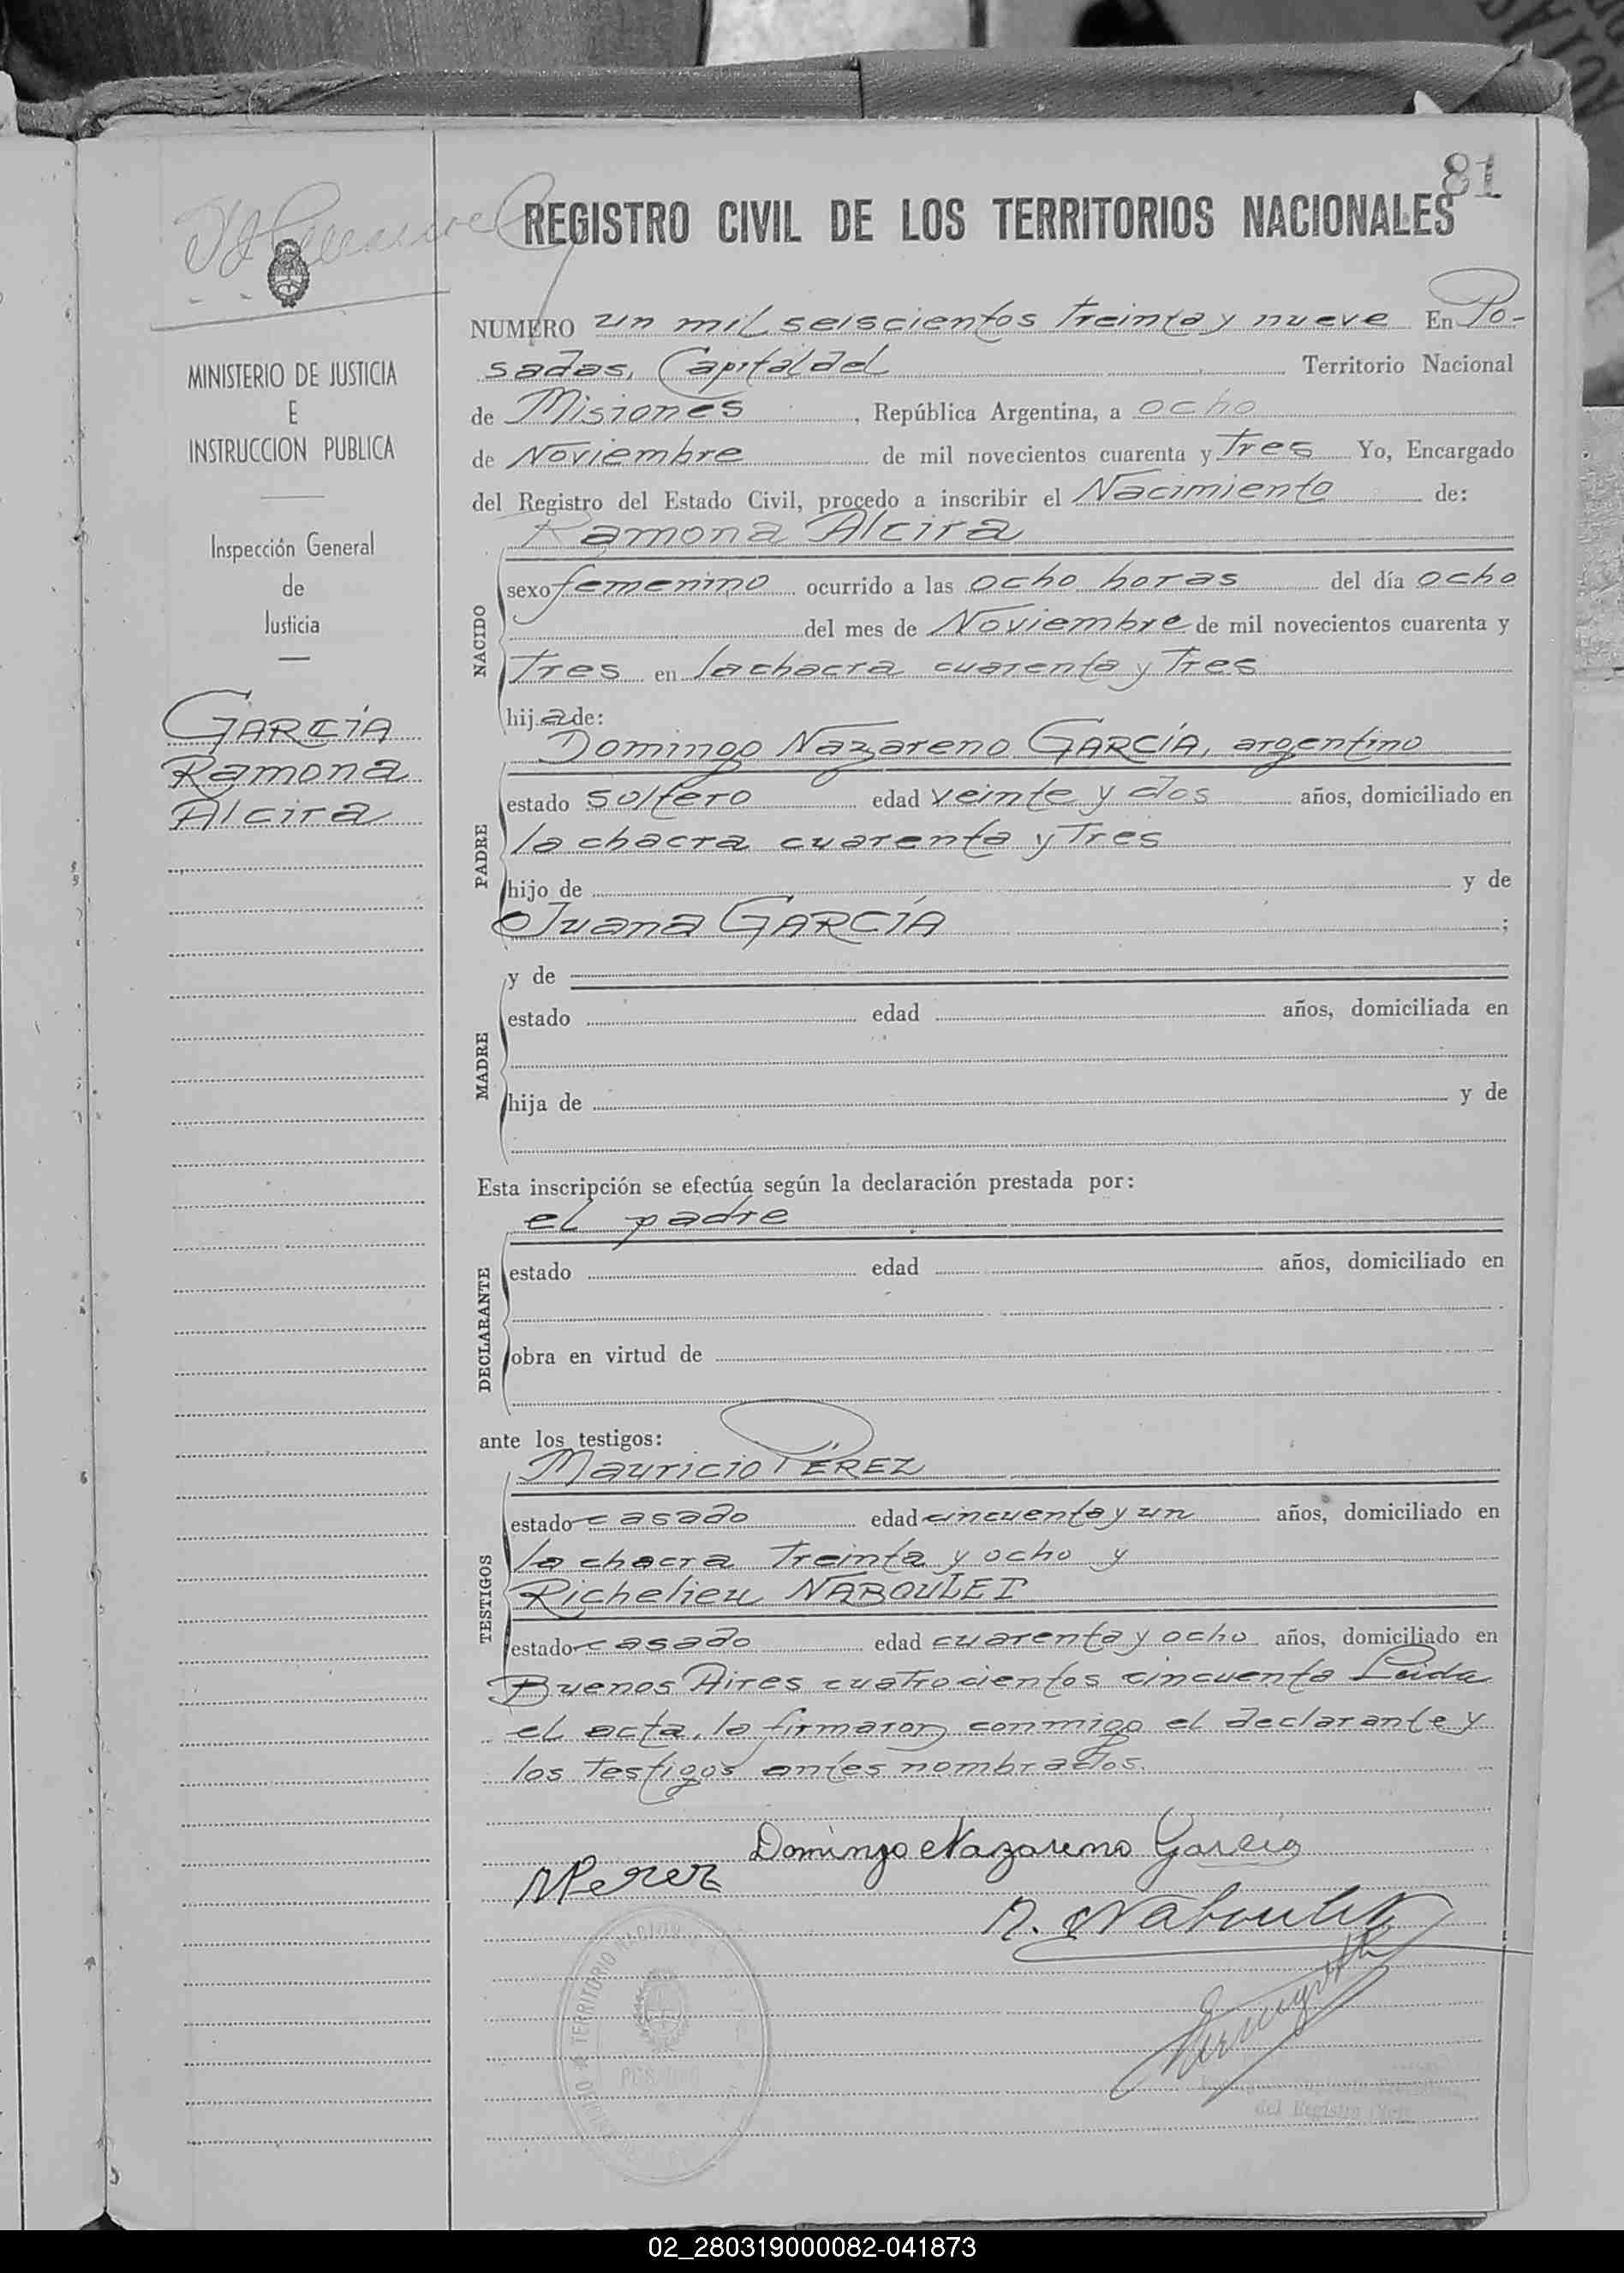 81
REGISTRO CIVIL DE LOS TERRITORIOS NACIONALES
MINISTERIO DE JUSTICIA
E
INSTRUCCION PUBLICA
Inspección General
de
Justicia
GARCÍA
Ramona
Alcira
NUMERO un mil seiscientos treinta y nueve En Po-
sadas, Capital del Territorio Nacional
de Misiones, República Argentina, a ocho
de Noviembre de mil novecientos cuarenta y tres Yo, Encargado
del Registro del Estado Civil, procedo a inscribir el Nacimiento de:
Ramona Alcira
NACIDO
sexo femenino ocurrido a las ocho horas del día ocho
del mes de Noviembre de mil novecientos cuarenta y
tres en la chacra cuarenta y tres
hija de:
Domingo Nazareno GARCÍA, argentino
PADRE
estado soltero edad veinte y dos años, domiciliado en
la chacra cuarenta y tres
hijo de y de
Juana GARCÍA ;
y de
MADRE
estado edad años, domiciliada en
hija de y de
Esta inscripción se efectúa según la declaración prestada por:
el padre
DECLARANTE
estado edad años, domiciliado en
obra en virtud de
ante los testigos:
Mauricio PÉREZ
TESTIGOS
estado casado edad cincuenta y un años, domiciliado en
la chacra treinta y ocho y
Richelieu NABOULET
estado casado edad cuarenta y ocho años, domiciliado en
Buenos Aires cuatrocientos cincuenta Leida
el acta, la firmaron conmigo el declarante y
los testigos antes nombrados.
Domingo Nazareno García
MPerez
R. Naboulet
TERRITORIO NACION
POSADAS
del Registro Civil
02_280319000082-041873